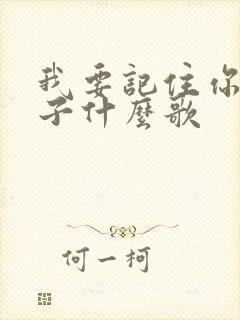 我要記住你
子什麼歌
何一柯